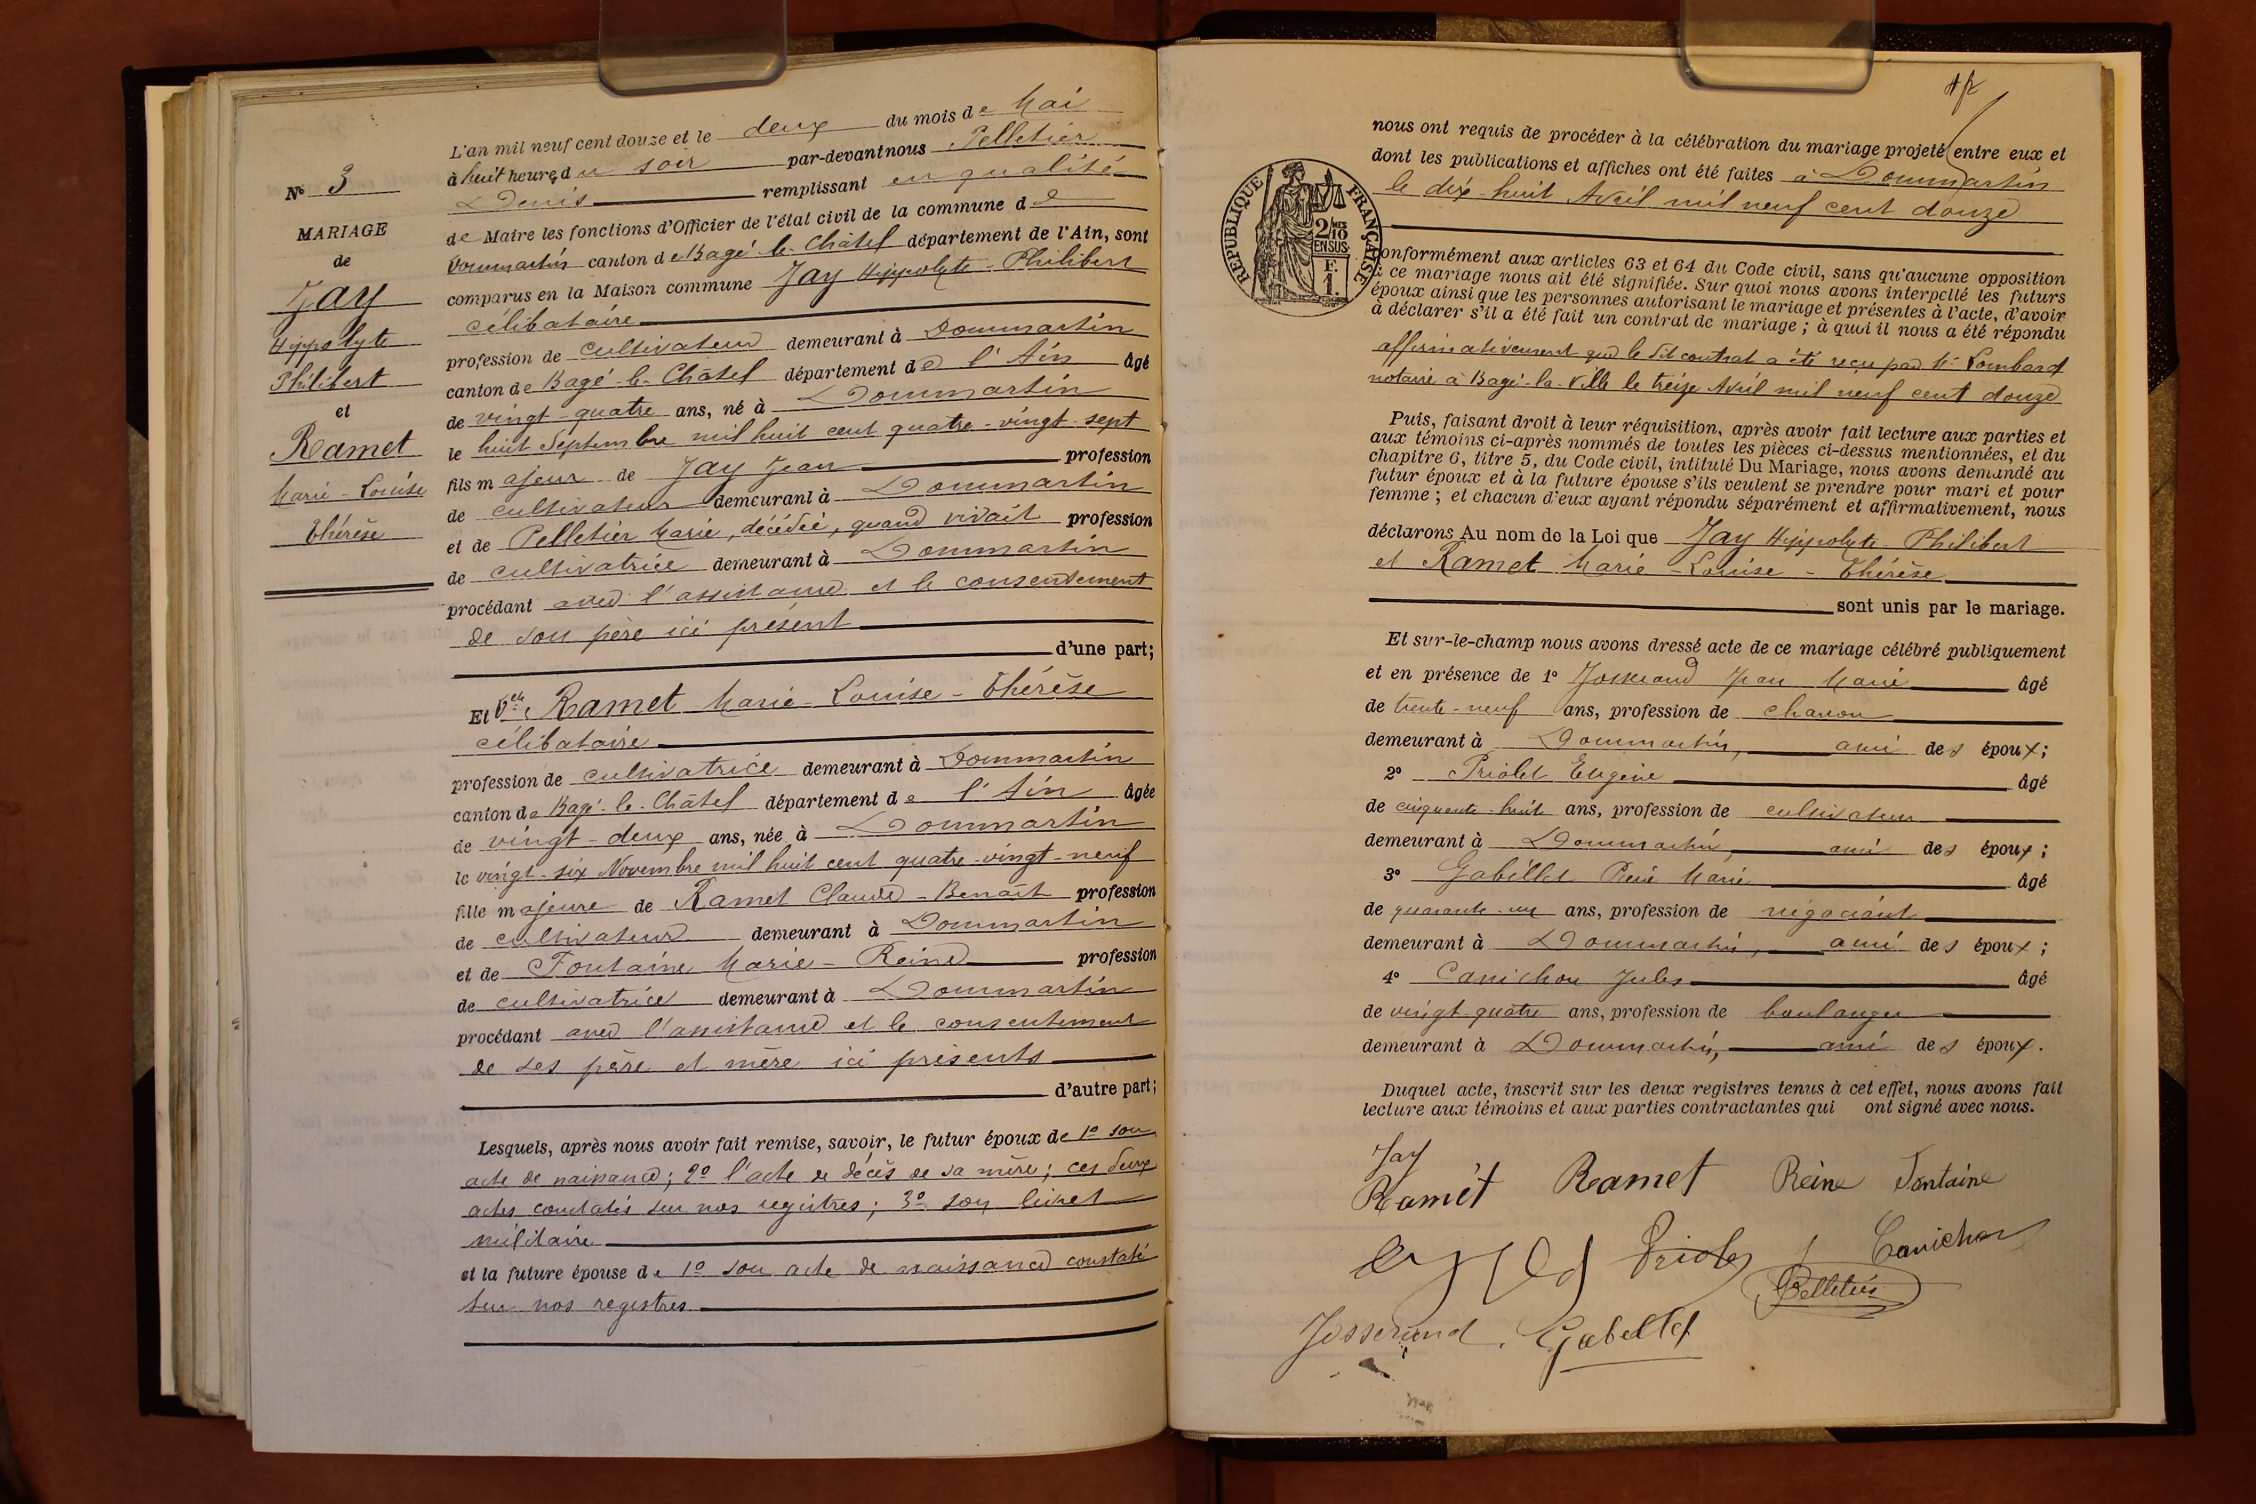 N° 3
MARIAGE
de
Jay
Hippolyte
Philibert
et
Ramet
Marie - Louise
Thérèse
L'an mil neuf cent douze et le deux du mois de Mai
à huit heures du soir par-devant nous Pelletier
Denis remplissant en qualité
de Maire les fonctions d'Officier de l'état civil de la commune de
Dommartin canton de Bagé-le-Châtel département de l'Ain, sont
comparus en la Maison commune Jay Hippolyte - Philibert
célibataire
profession de cultivateur demeurant à Dommartin
canton de Bagé-le-Châtel département de l'Ain âgé
de vingt-quatre ans, né à Dommartin
le huit Septembre mil huit cent quatre-vingt-sept
fils majeur de Jay Jean profession
de cultivateur demeurant à Dommartin
et de Pelletier Marie, décédée, quand vivait profession
de cultivatrice demeurant à Dommartin
procédant avec l'assistance et le consentement
de son père ici présent
d'une part;
Et Delle Ramet Marie-Louise-Thérèse
célibataire
profession de cultivatrice demeurant à Dommartin
canton de Bagé-le-Châtel département de l'Ain âgée
de vingt-deux ans, née à Dommartin
le vingt-six Novembre mil huit cent quatre-vingt-neuf
fille majeure de Ramet Claude-Benoît profession
de cultivateur demeurant à Dommartin
et de Fontaine Marie-Reine profession
de cultivatrice demeurant à Dommartin
procédant avec l'assistance et le consentement
de ses père et mère ici présents
d'autre part;
Lesquels, après nous avoir fait remise, savoir, le futur époux de 1° son
acte de naissance; 2° l'acte de décès de sa mère; ces deux
actes constatés sur nos registres; 3° son livret
militaire
et la future épouse de 1° son acte de naissance constaté
sur nos registres
nous ont requis de procéder à la célébration du mariage projeté entre eux et
dont les publications et affiches ont été faites à Dommartin
le dix-huit Avril mil neuf cent douze
RÉPUBLIQUE FRANÇAISE
2/10 EN SUS
F. 1.
conformément aux articles 63 et 64 du Code civil, sans qu'aucune opposition
à ce mariage nous ait été signifiée. Sur quoi nous avons interpellé les futurs
époux ainsi que les personnes autorisant le mariage et présentes à l'acte, d'avoir
à déclarer s'il a été fait un contrat de mariage; à quoi il nous a été répondu
affirmativement que le dit contrat a été reçu par Me Lombard
notaire à Bagé-la-Ville le treize Avril mil neuf cent douze
Puis, faisant droit à leur réquisition, après avoir fait lecture aux parties et
aux témoins ci-après nommés de toutes les pièces ci-dessus mentionnées, et du
chapitre 6, titre 5, du Code civil, intitulé Du Mariage, nous avons demandé au
futur époux et à la future épouse s'ils veulent se prendre pour mari et pour
femme; et chacun d'eux ayant répondu séparément et affirmativement, nous
déclarons Au nom de la Loi que Jay Hippolyte-Philibert
et Ramet Marie-Louise-Thérèse
sont unis par le mariage.
Et sur-le-champ nous avons dressé acte de ce mariage célébré publiquement
et en présence de 1° Josserand Jean Marie âgé
de trente-neuf ans, profession de charron
demeurant à Dommartin, ami des époux;
2° Priolet Eugène âgé
de cinquante-huit ans, profession de cultivateur
demeurant à Dommartin, ami des époux;
3° Gabillet René Marie âgé
de quarante-un ans, profession de négociant
demeurant à Dommartin, ami des époux;
4° Canichon Jules âgé
de vingt-quatre ans, profession de boulanger
demeurant à Dommartin, ami des époux.
Duquel acte, inscrit sur les deux registres tenus à cet effet, nous avons fait
lecture aux témoins et aux parties contractantes qui ont signé avec nous.
Jay
Ramet Ramet Reine Fontaine
Canichon
Pelletier
Josserand. Gabillet